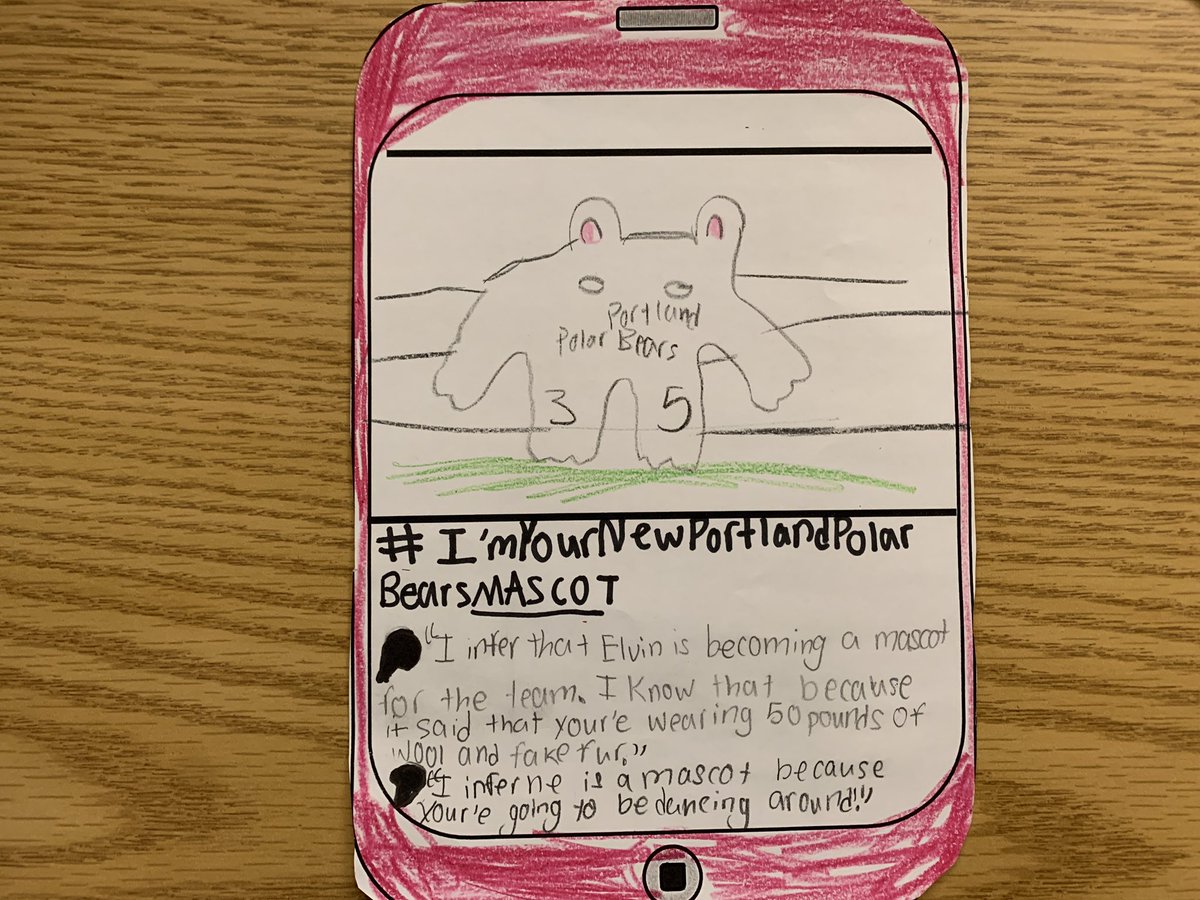 Portland
Polar Bears
3 5
#I'mYourNewPortlandPolar
BearsMASCOT
"I infer that Elvin is becoming a mascot
for the team. I know that because
it said that your'e wearing 50 pounds of
wool and fake fur."
"I infer he is a mascot because
your'e going to be dancing around!"